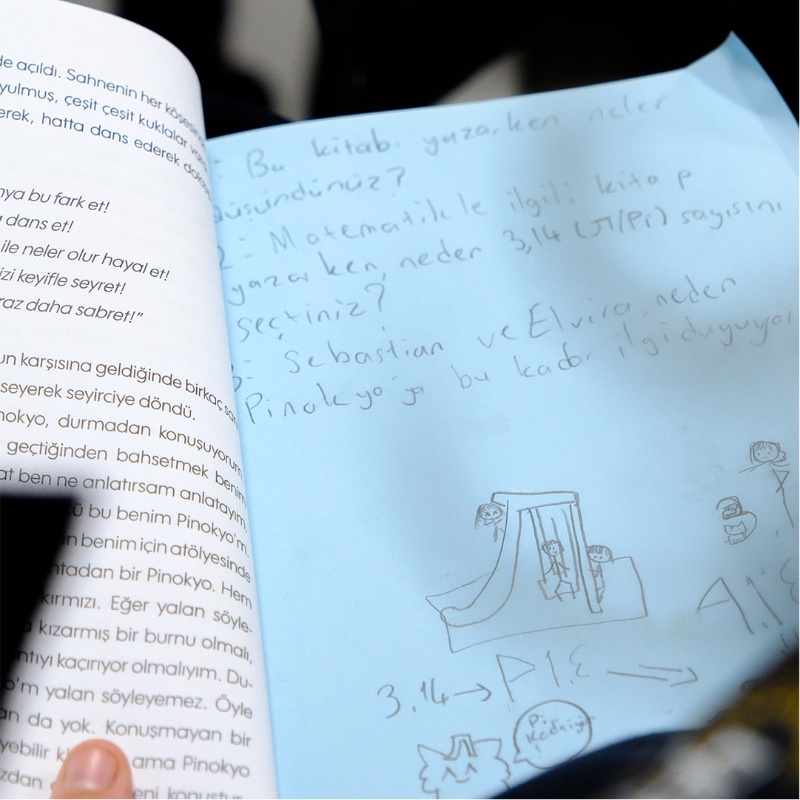 de açıldı. Sahnenin her köşesine
yulmuş, çeşit çeşit kuklalar
erek, hatta dans ederek
nya bu fark et!
dans et!
ile neler olur hayal et!
izi keyifle seyret!
raz daha sabret!"
un karşısına geldiğinde birkaç
seyerek seyirciye döndü.
nokyo, durmadan konuşuyorum
geçtiğinden bahsetmek benim
at ben ne anlatırsam anlatayım
bu benim Pinokyo'm.
in benim için atölyesinde
ntadan bir Pinokyo. Hem
kırmızı. Eğer yalan söyle-
kızarmış bir burnu olmalı,
ntıyı kaçırıyor olmalıyım. Du-
o'm yalan söyleyemez. Öyle
an da yok. Konuşmayan bir
yebilir ama Pinokyo
zdan eni konuştur
- Bu kitab. yazarken neler
düşündünüz?
2- Matematikle ilgili kitap
yazarken, neden 3,14 (π/Pi) sayısını
seçtiniz?
3- Sebastian ve Elvira neden
Pinokyo'ya bu kadar ilgi duyuyor
A.I.E
3.14 → P.I.E →
Pi
Kedriyi
!